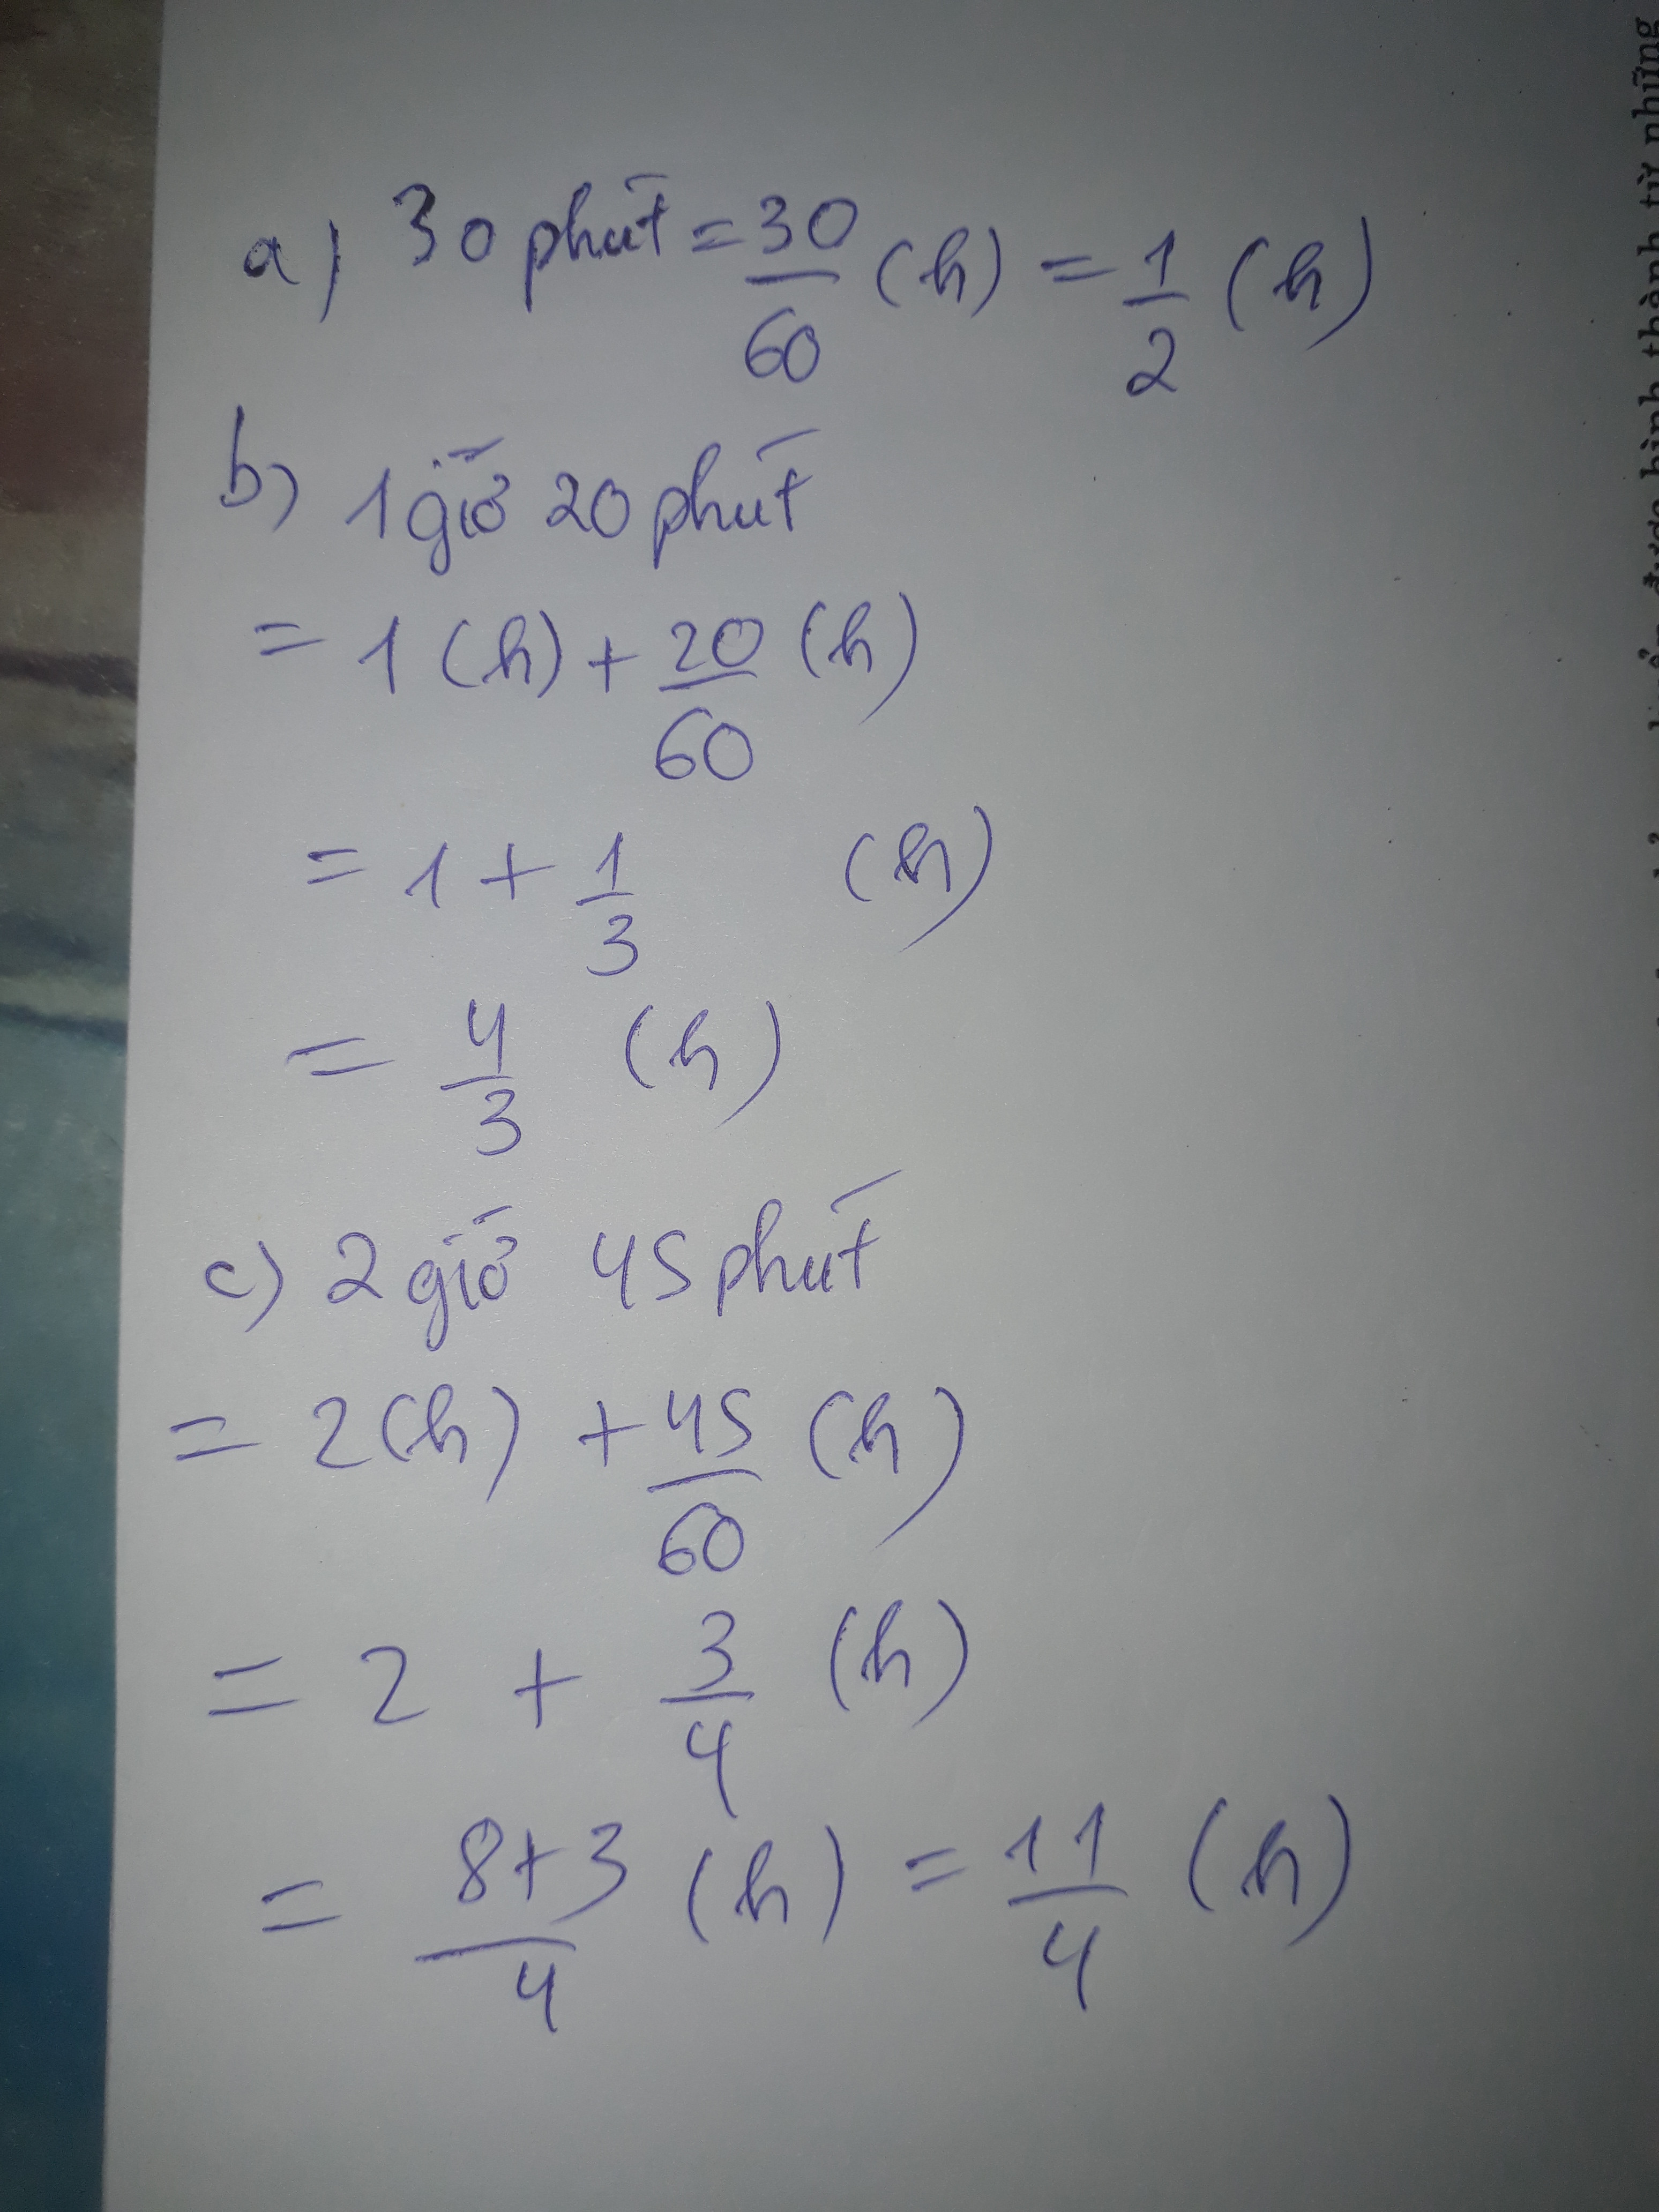 a) 30 phút = 30/60 (h) = 1/2 (h)
b) 1 giờ 20 phút
= 1 (h) + 20/60 (h)
= 1 + 1/3 (h)
= 4/3 (h)
c) 2 giờ 45 phút
= 2 (h) + 45/60 (h)
= 2 + 3/4 (h)
= 8+3/4 (h) = 11/4 (h)
được hình thành từ những